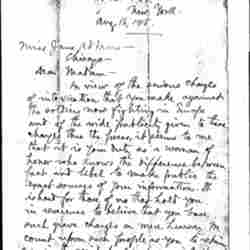 New York
Aug. 13, 1915.
Miss Jane Addams—
Chicago—
Dear Madam:—
In view of the serious charges
of intoxication that you make against
the soldiers now fighting in Europe
and of the wide publicity given to these
charges thru the press, it seems to me
that it is your duty as a woman of
honor who knows the difference between
fact and libel to make public the
exact sources of your information. It
is hard for those of us that hold you
in reverence to believe that you base
such grave charges on mere hearsay. We
count upon such people as you to